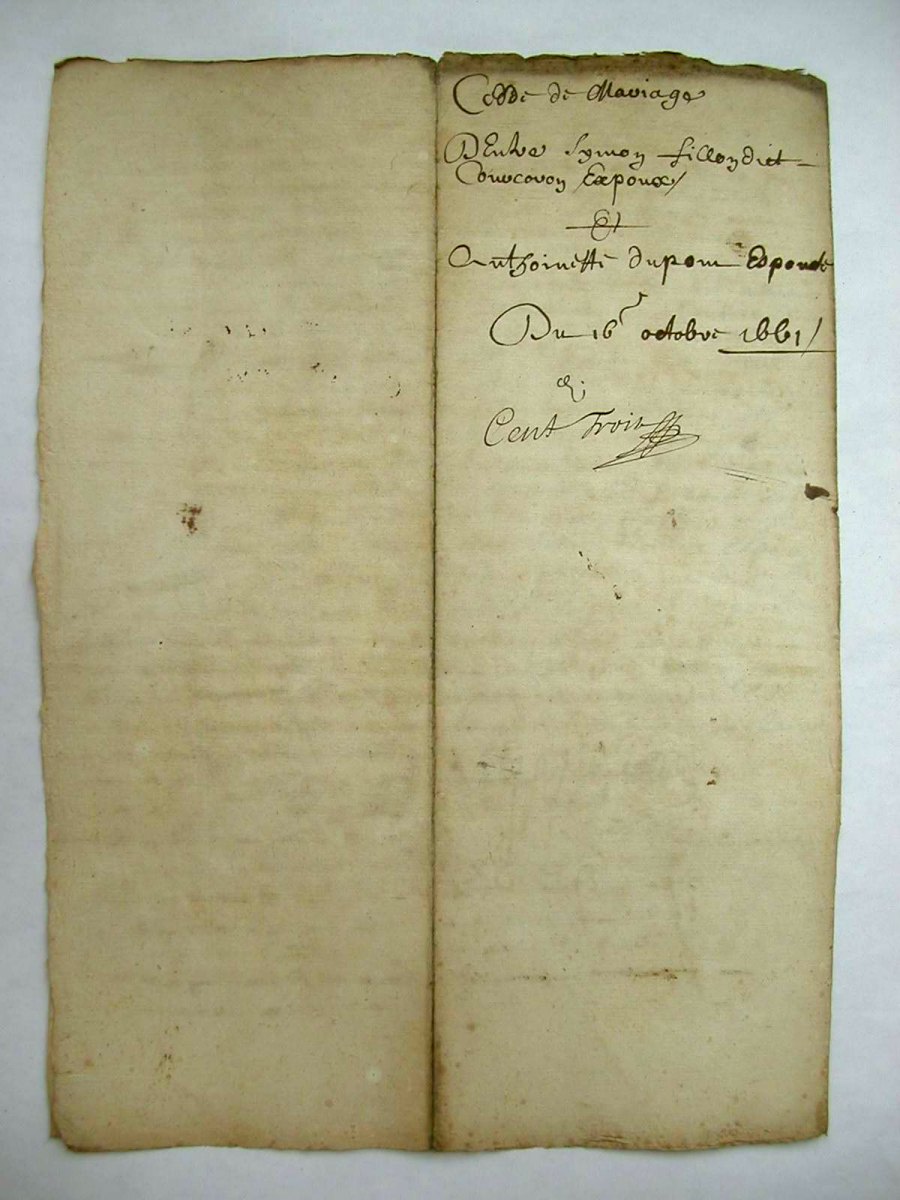 Cedde de Mariage
DEntre Symon fillon dict
Courcoron Expoux /
Et
Anthoinette dupont Espouse
Du 16 octobre 1661 /
Cent Trois